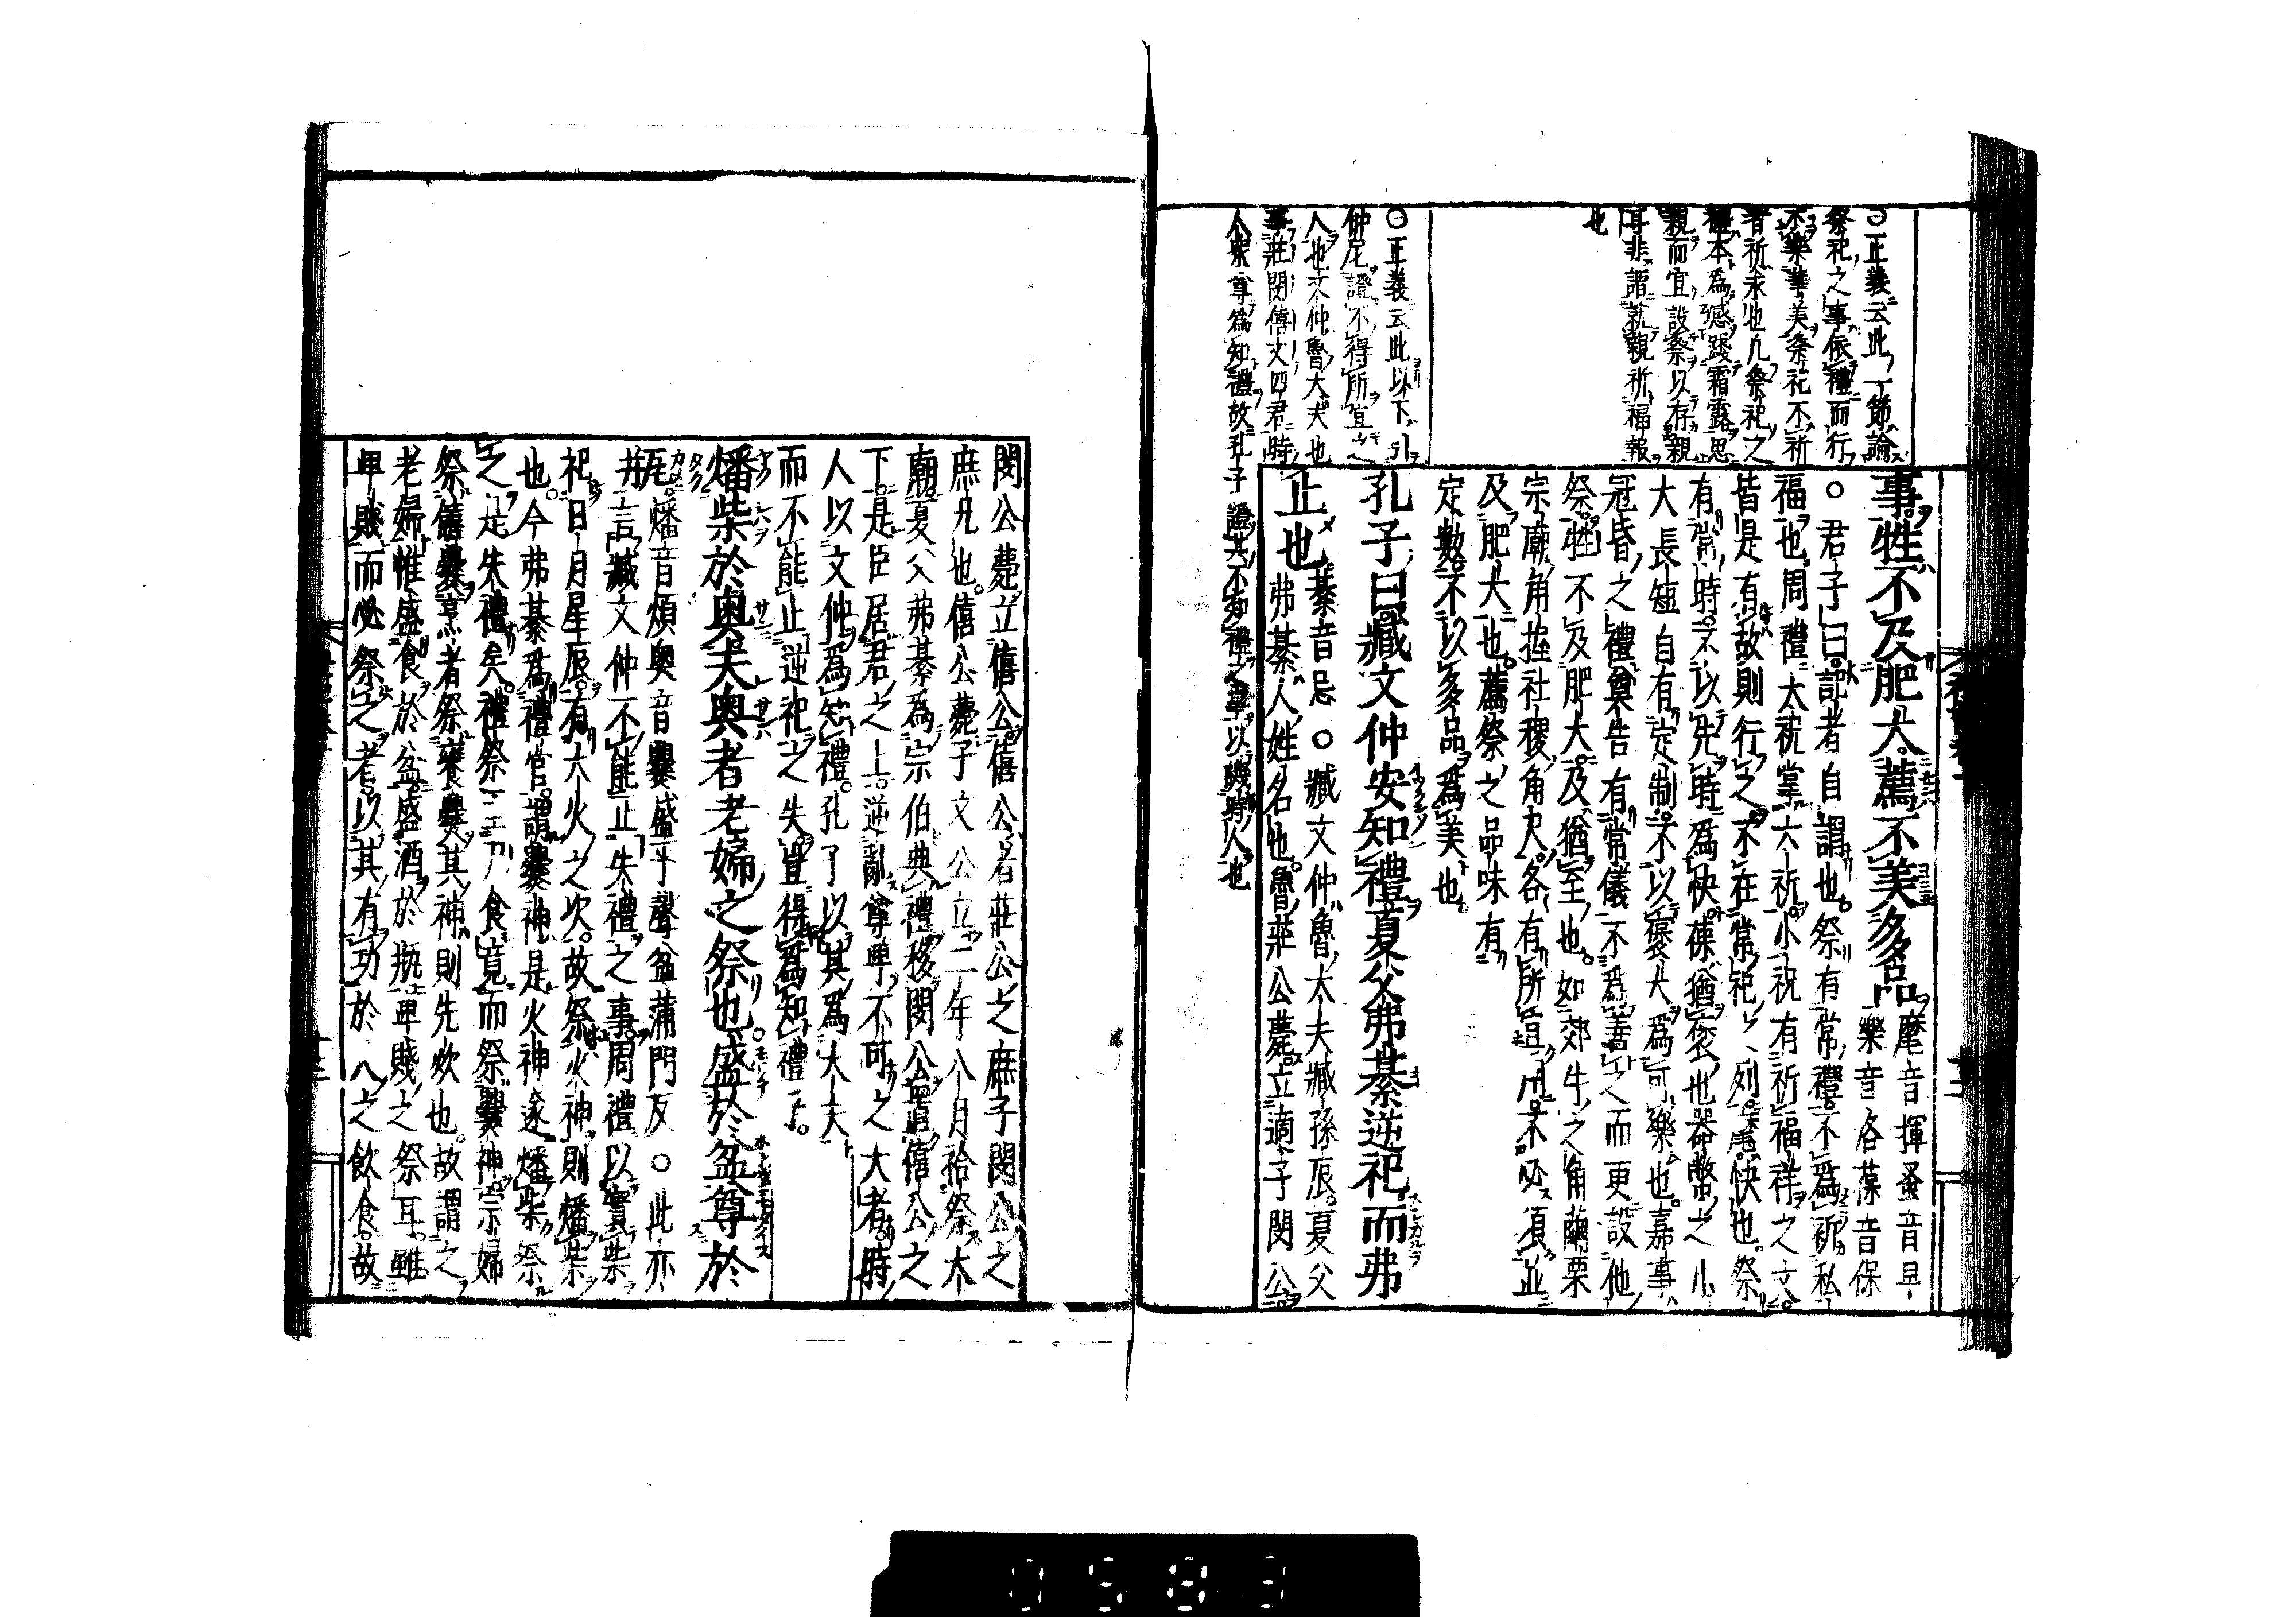 ○正義云此一節論
祭祀之事依禮而行
不樂華美祭祀不祈
者祈求也凡祭祀之
禮本為感踐霜露思
親而宜設祭以存親
耳非謂就親祈福報
也
○正義云此以下引
仲尼證不得所宜之
人也文仲魯大夫也
事莊閔僖文四君時
人皆尊為知禮故孔子證其不知禮之事以譏時人也
事牲不及肥大薦不美多品麾音揮蚤音早
樂音洛葆音保
○君子曰記者自謂也祭有常禮不為祈私
福也周禮太祝掌六祈小祝有祈福祥之文
皆是有故則行之不在常祀之列麾快也祭
有常時不以先時為快葆猶褒也器幣之小
大長短自有定制不以褒大為可樂也嘉事
冠昏之禮奠告有常儀不為善之而更設他
祭牲不及肥大及猶至也如郊牛之角繭栗
宗廟角握社稷角尺各有所宜用不必須並
及肥大也薦祭之品味有
定數不以多品為美也
孔子曰臧文仲安知禮夏父弗綦逆祀而弗
止也綦音忌○臧文仲魯大夫臧孫辰夏父
弗綦人姓名也魯莊公薨立適子閔公
閔公薨立僖公僖公者莊公之庶子閔公之
庶兄也僖公薨子文公立二年八月祫祭大
廟夏父弗綦為宗伯典禮移閔公置僖公之
下是臣居君之上逆亂尊卑不可之大者時
人以文仲為知禮孔子以其為大夫
而不能止逆祀之失豈得為知禮乎
燔柴於奧夫奧者老婦之祭也盛於盆尊於
瓶燔音煩奧音爨盛平聲盆蒲門反○此亦
并言臧文仲不能止失禮之事周禮以實柴
祀日月星辰有大火之次故祭火神則燔柴
也今弗綦為禮官謂爨神是火神遂燔柴祭
之是失禮矣禮祭至尸食竟而祭爨神宗婦
祭饎爨烹者祭饔爨其神則先炊也故謂之
老婦惟盛食於盆盛酒於瓶卑賤之祭耳雖
卑賤而必祭之者以其有功於人之飲食故